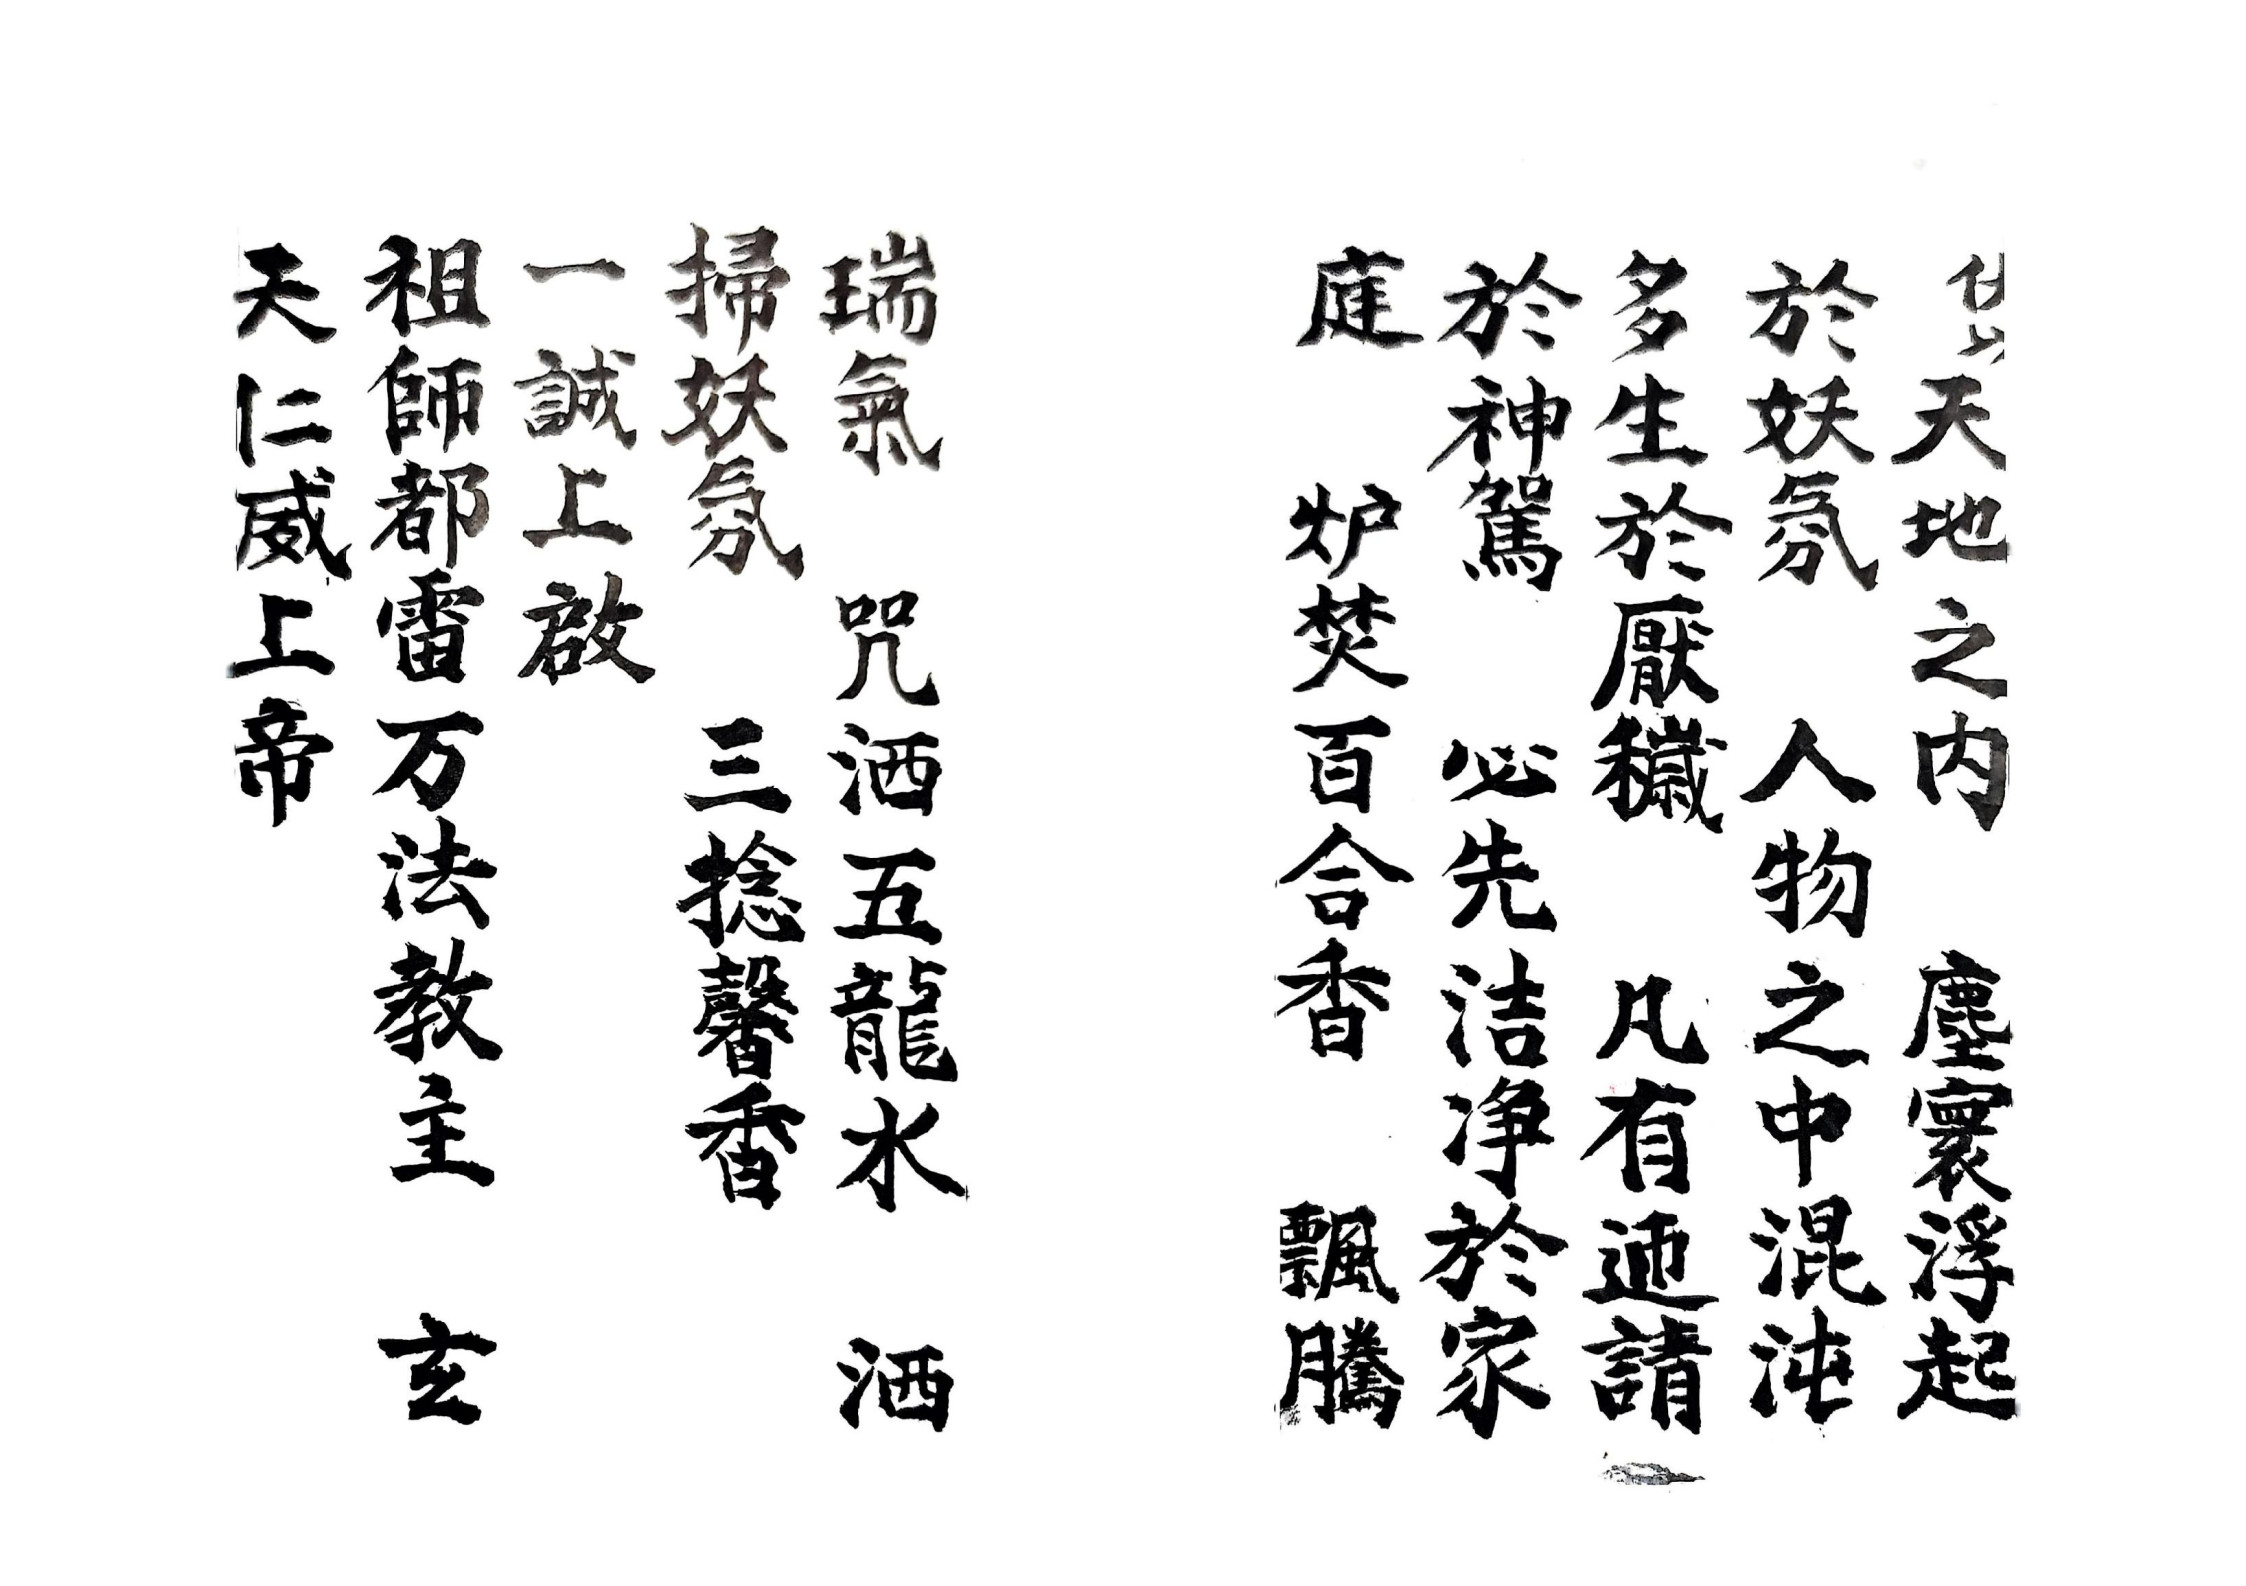 天地之内 塵寰浮起
於妖氛 人物之中混沌
多生於厭穢 凡有迊請
於神駕 必先洁净於家
庭 炉焚百合香 飄騰
瑞氣 咒洒五龍水 洒
掃妖氛 三捻馨香
一誠上啟
祖師都雷万法教主 玄
天仁威上帝